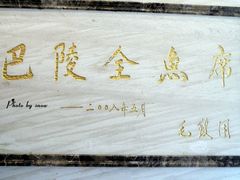 巴陵全魚席
Photo by snow
——二〇〇八年五月
毛致用